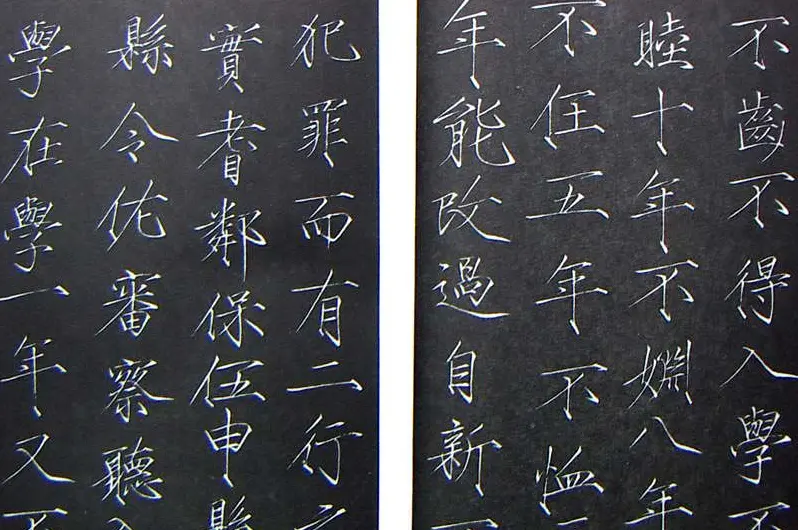 不齒不得入學不
睦十年不婣八年
不任五年不恤
年能改過自新不
犯罪而有二行之
實耆鄰保伍申縣
縣令佐審察聽入
學在學一年又不